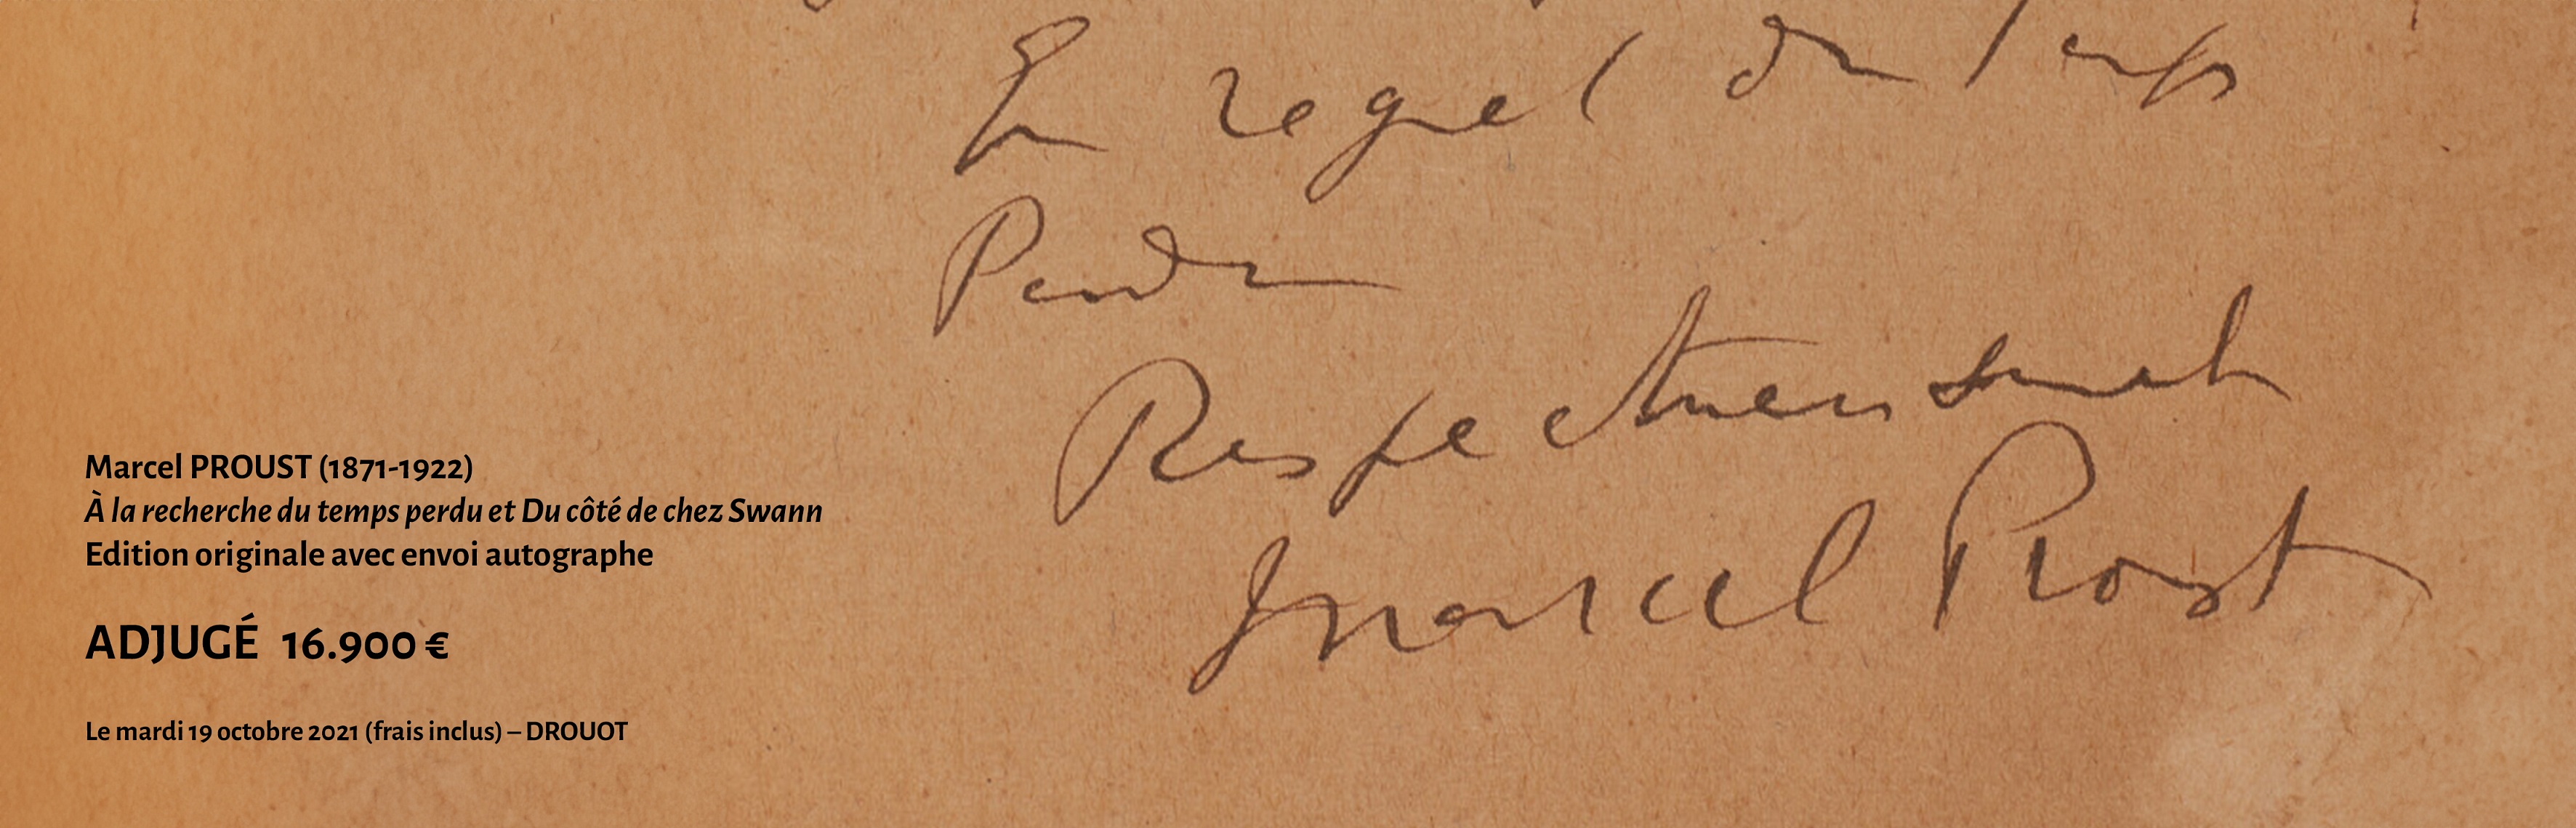 En regret du Temps
Perdu
Respectueusement
Marcel Proust
Marcel PROUST (1871-1922)
À la recherche du temps perdu et Du côté de chez Swann
Edition originale avec envoi autographe
ADJUGÉ 16.900 €
Le mardi 19 octobre 2021 (frais inclus) – DROUOT